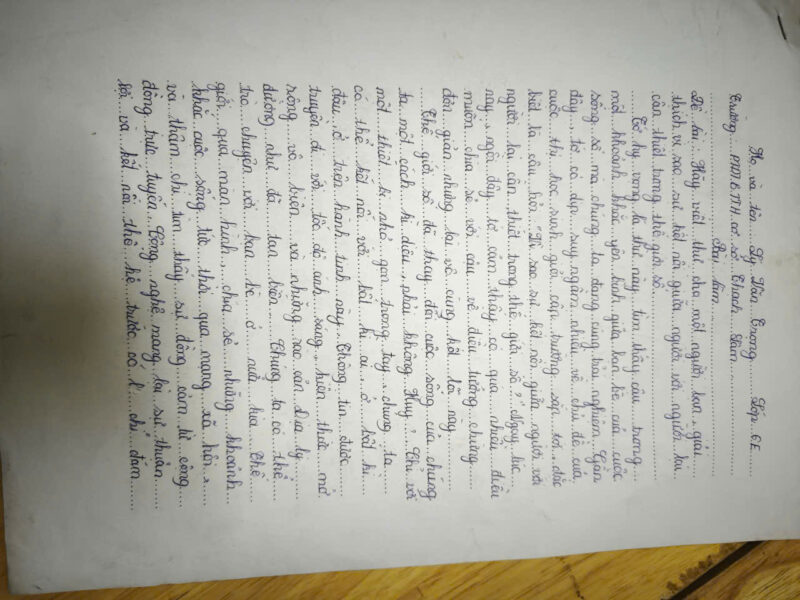 Họ và tên: Lý Dân Trong Lớp 6E
Trường: PTDTBTTH cơ sở Thạch Lâm
Bài làm
Đề bài: Hãy viết thư cho một người bạn, giải
thích vì sao sự kết nối giữa người với người lại
cần thiết trong thế giới số
Tớ hy vọng lá thư này tìm thấy cậu trong
một khoảnh khắc yên bình giữa bộn bề của cuộc
sống số mà chúng ta đang cùng trải nghiệm. Gần
đây, tớ có dịp suy ngẫm nhiều về chủ đề của
cuộc thi học sinh giỏi cấp trường sắp tới, đặc
biệt là câu hỏi: "Tại sao sự kết nối giữa người với
người lại cần thiết trong thế giới số?" Ngay lúc
này, ngồi đây tớ cảm thấy có quá nhiều điều
muốn chia sẻ với cậu về điều tưởng chừng
đơn giản nhưng lại vô cùng kết lõi này
Thế giới số đã thay đổi cuộc sống của chúng
ta một cách kì diệu, phải không Huy? Chỉ với
một thiết bị nhỏ gọn trong tay, chúng ta
có thể kết nối với bất kì ai, ở bất kì
đâu ở trên hành tinh này. Thông tin được
truyền đi với tốc độ ánh sáng, kiến thức mở
rộng vô biên và những rào cản địa lý
dường như đã tan biến. Chúng ta có thể
trò chuyện với bạn bè ở nửa kia thế
giới qua màn hình, chia sẻ những khoảnh
khắc cuộc sống tức thời qua mạng xã hội,
và thậm chí tìm thấy sự đồng cảm từ cộng
đồng trực tuyến. Công nghệ mang lại sự thuận
lợi và kết nối thế hệ trước có lẽ chỉ dám